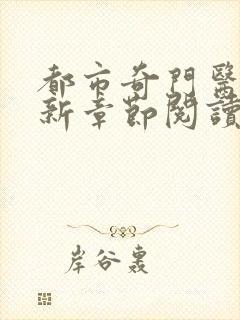 都市奇門醫
新章節閱讀
岸谷轟